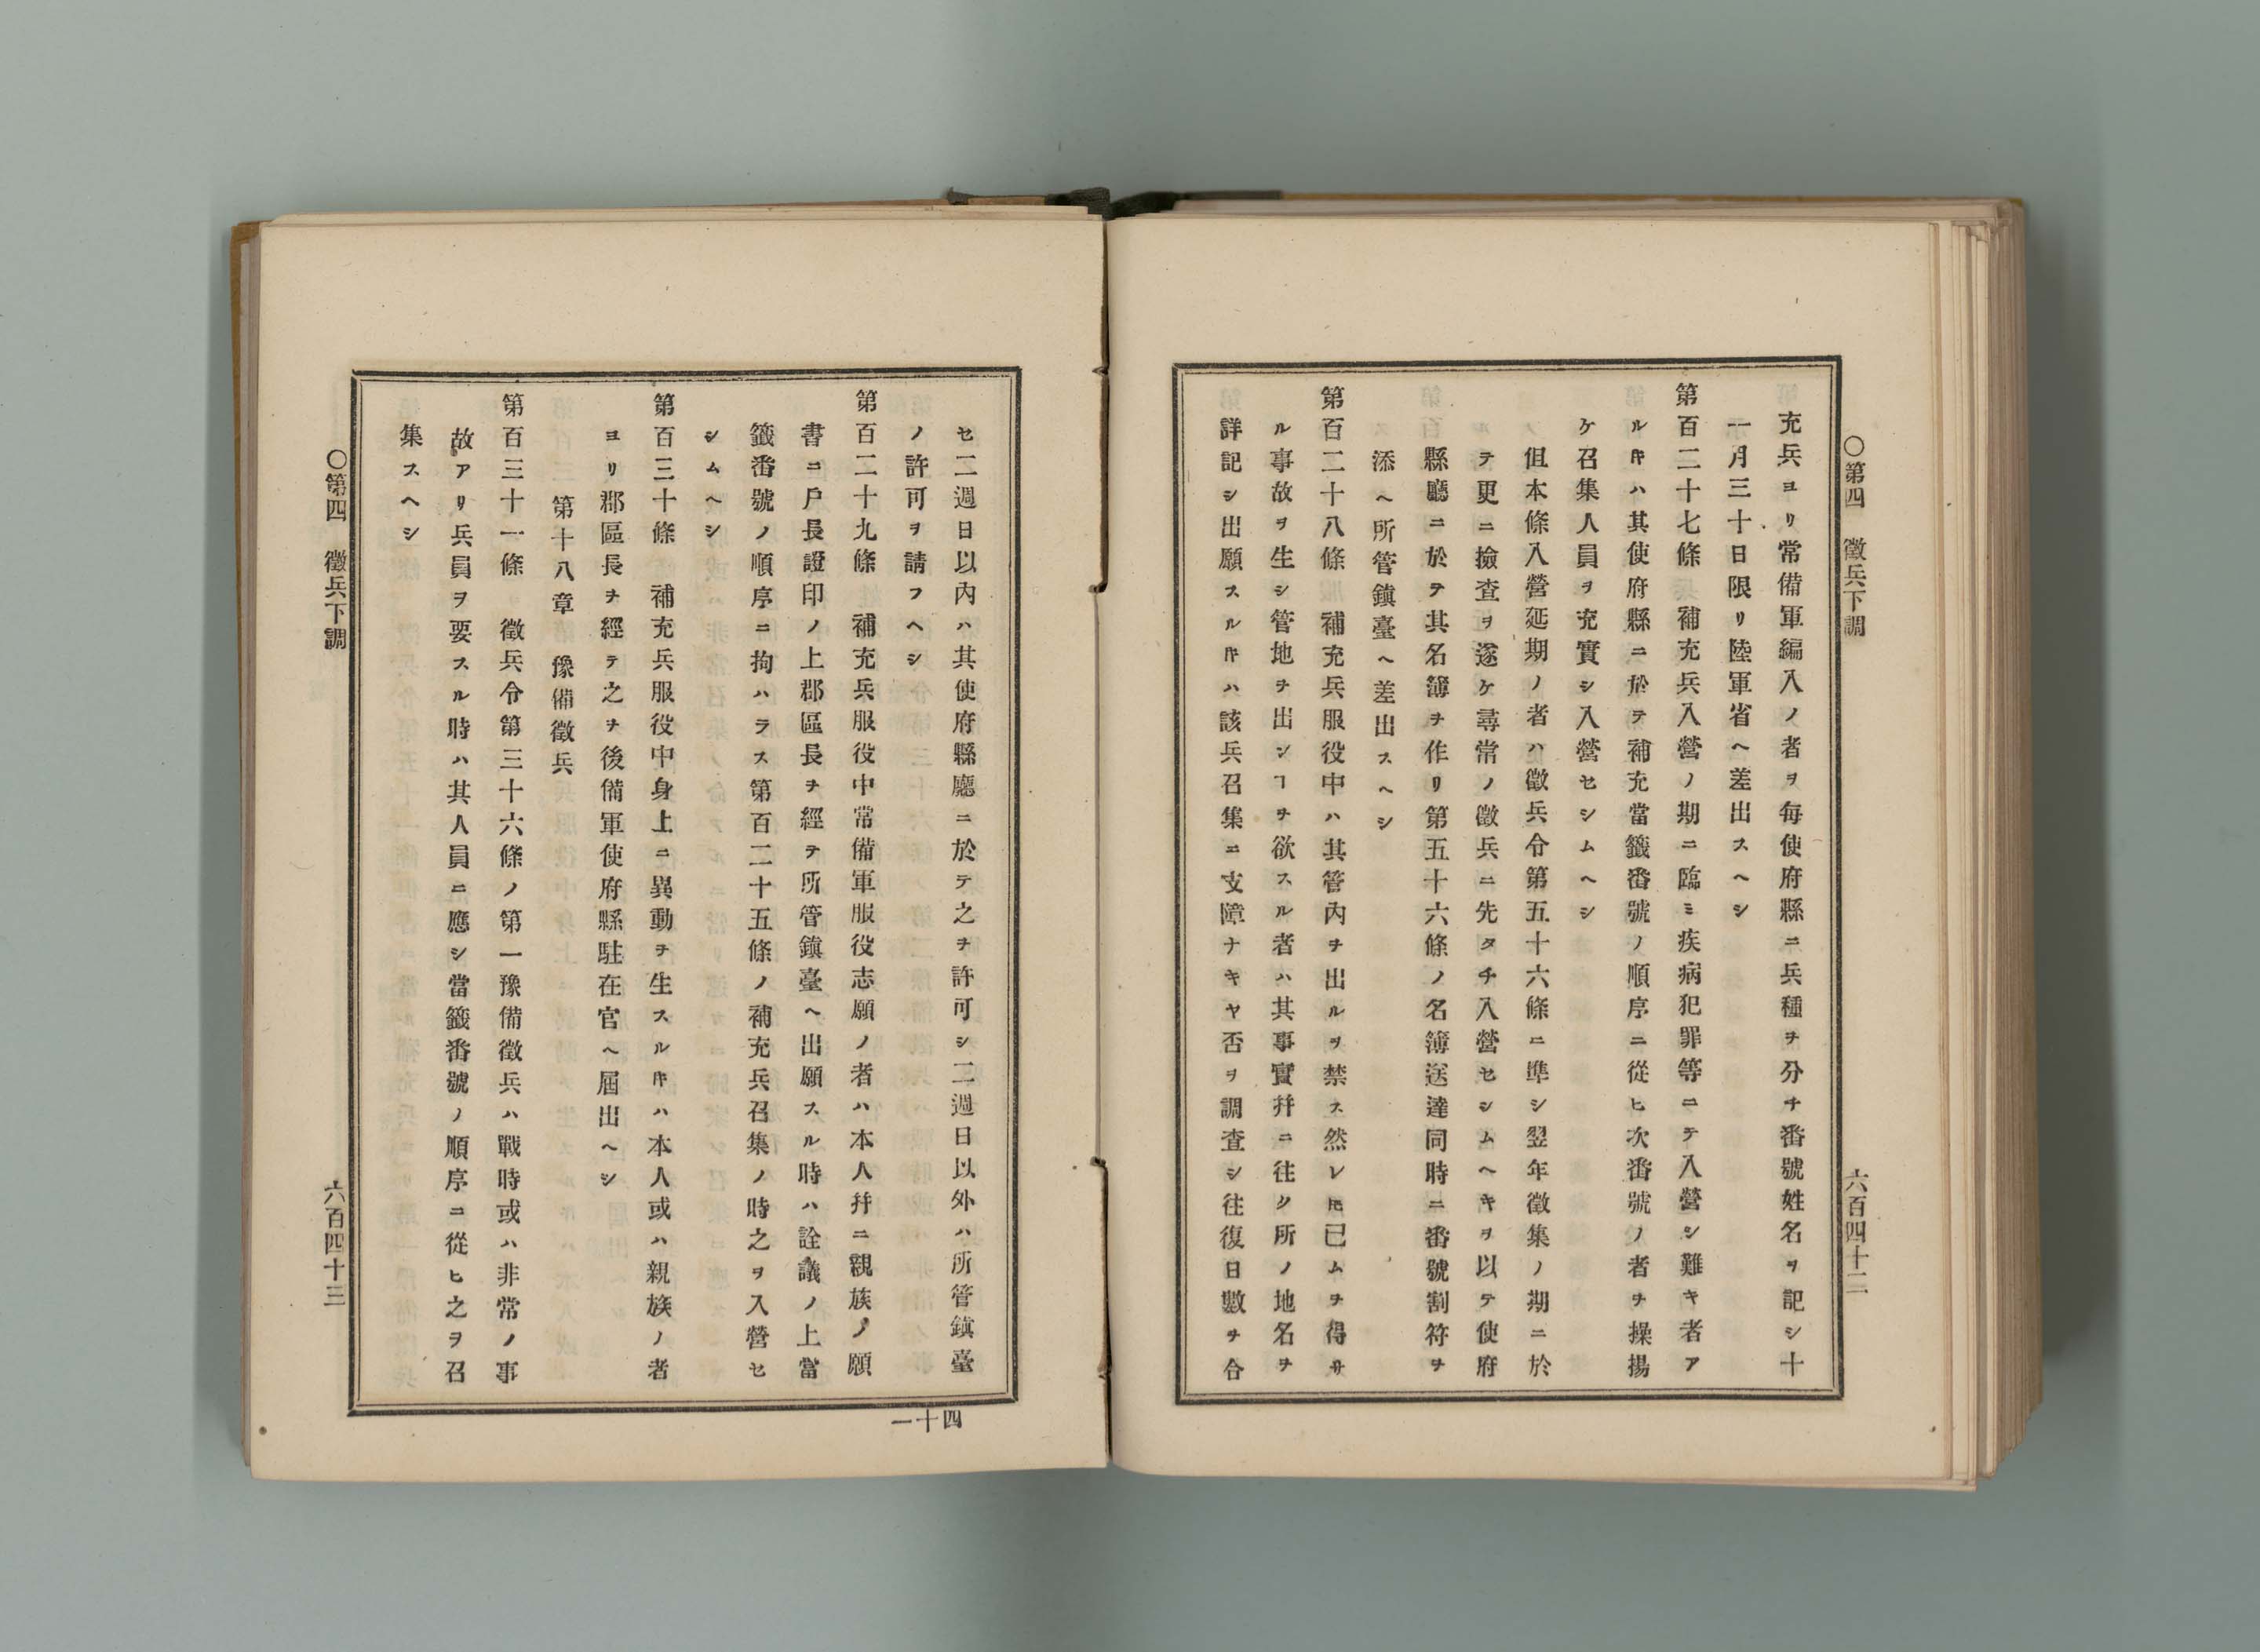 〇第四　徵兵下調
六百四十二
充兵ヨリ常備軍編入ノ者ヲ每使府縣ニ兵種ヲ分チ番號姓名ヲ記シ十
一月三十日限リ陸軍省ヘ差出スヘシ
第百二十七條　補充兵入營ノ期ニ臨ミ疾病犯罪等ニテ入營シ難キ者ア
ルキハ其使府縣ニ於テ補充當籤番號ノ順序ニ從ヒ次番號ノ者チ操揚
ケ召集人員ヲ充實シ入營セシムヘシ
但本條入營延期ノ者ハ徵兵令第五十六條ニ準シ翌年徵集ノ期ニ於
テ更ニ撿査ヲ遂ケ尋常ノ徵兵ニ先タチ入營セシムヘキヲ以テ使府
縣廳ニ於テ其名簿ヲ作リ第五十六條ノ名簿送達同時ニ番號割符ヲ
添ヘ所管鎮臺ヘ差出スヘシ
第百二十八條　補充兵服役中ハ其管內チ出ルヲ禁ス然レ𪜈已ムヲ得サ
ル事故ヲ生シ管地チ出シヿチ欲スル者ハ其事實幷ニ往ク所ノ地名ヲ
詳記シ出願スルキハ該兵召集ニ支障ナキヤ否ヲ調査シ往復日數チ合
セ二週日以內ハ其使府縣廳ニ於テ之チ許可シ二週日以外ハ所管鎮臺
ノ許可ヲ請フヘシ
第百二十九條　補充兵服役中常備軍服役志願ノ者ハ本人幷ニ親族ノ願
書ニ戶長證印ノ上郡區長チ經テ所管鎮臺ヘ出願スル時ハ詮議ノ上當
籤番號ノ順序ニ拘ハラス第百二十五條ノ補充兵召集ノ時之ヲ入營セ
シムヘシ
第百三十條　補充兵服役中身上ニ異動チ生スルキハ本人或ハ親族ノ者
ヨリ郡區長チ經テ之チ後備軍使府縣駐在官ヘ屆出ヘシ
第十八章　豫備徵兵
第百三十一條　徵兵令第三十六條ノ第一豫備徵兵ハ戰時或ハ非常ノ事
故アリ兵員ヲ要スル時ハ其人員ニ應シ當籤番號ノ順序ニ從ヒ之ヲ召
集スヘシ
〇第四　徵兵下調
六百四十三
四十一